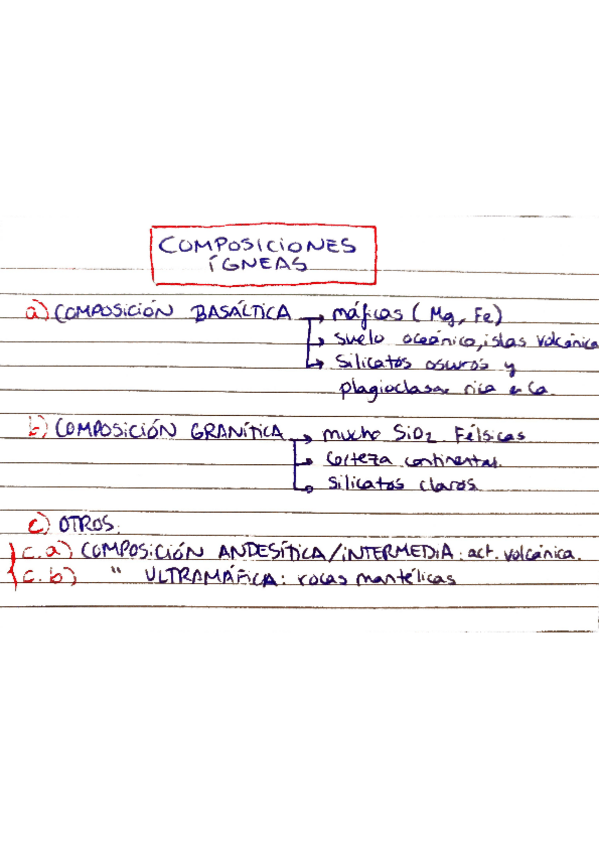 COMPOSICIONES
ÍGNEAS
a) COMPOSICIÓN BASÁLTICA → máficas (Mg, Fe)
→ suelo oceánico, islas volcánica
→ Silicatos oscuros y
plagioclasa rica en Ca.
b) COMPOSICIÓN GRANÍTICA → mucho SiO2 Félsicas
→ Corteza continental.
→ Silicatos claros
c) OTROS:
c.a) COMPOSICIÓN ANDESÍTICA/INTERMEDIA: act. volcánica.
c.b) " ULTRAMÁFICA: rocas mantélicas